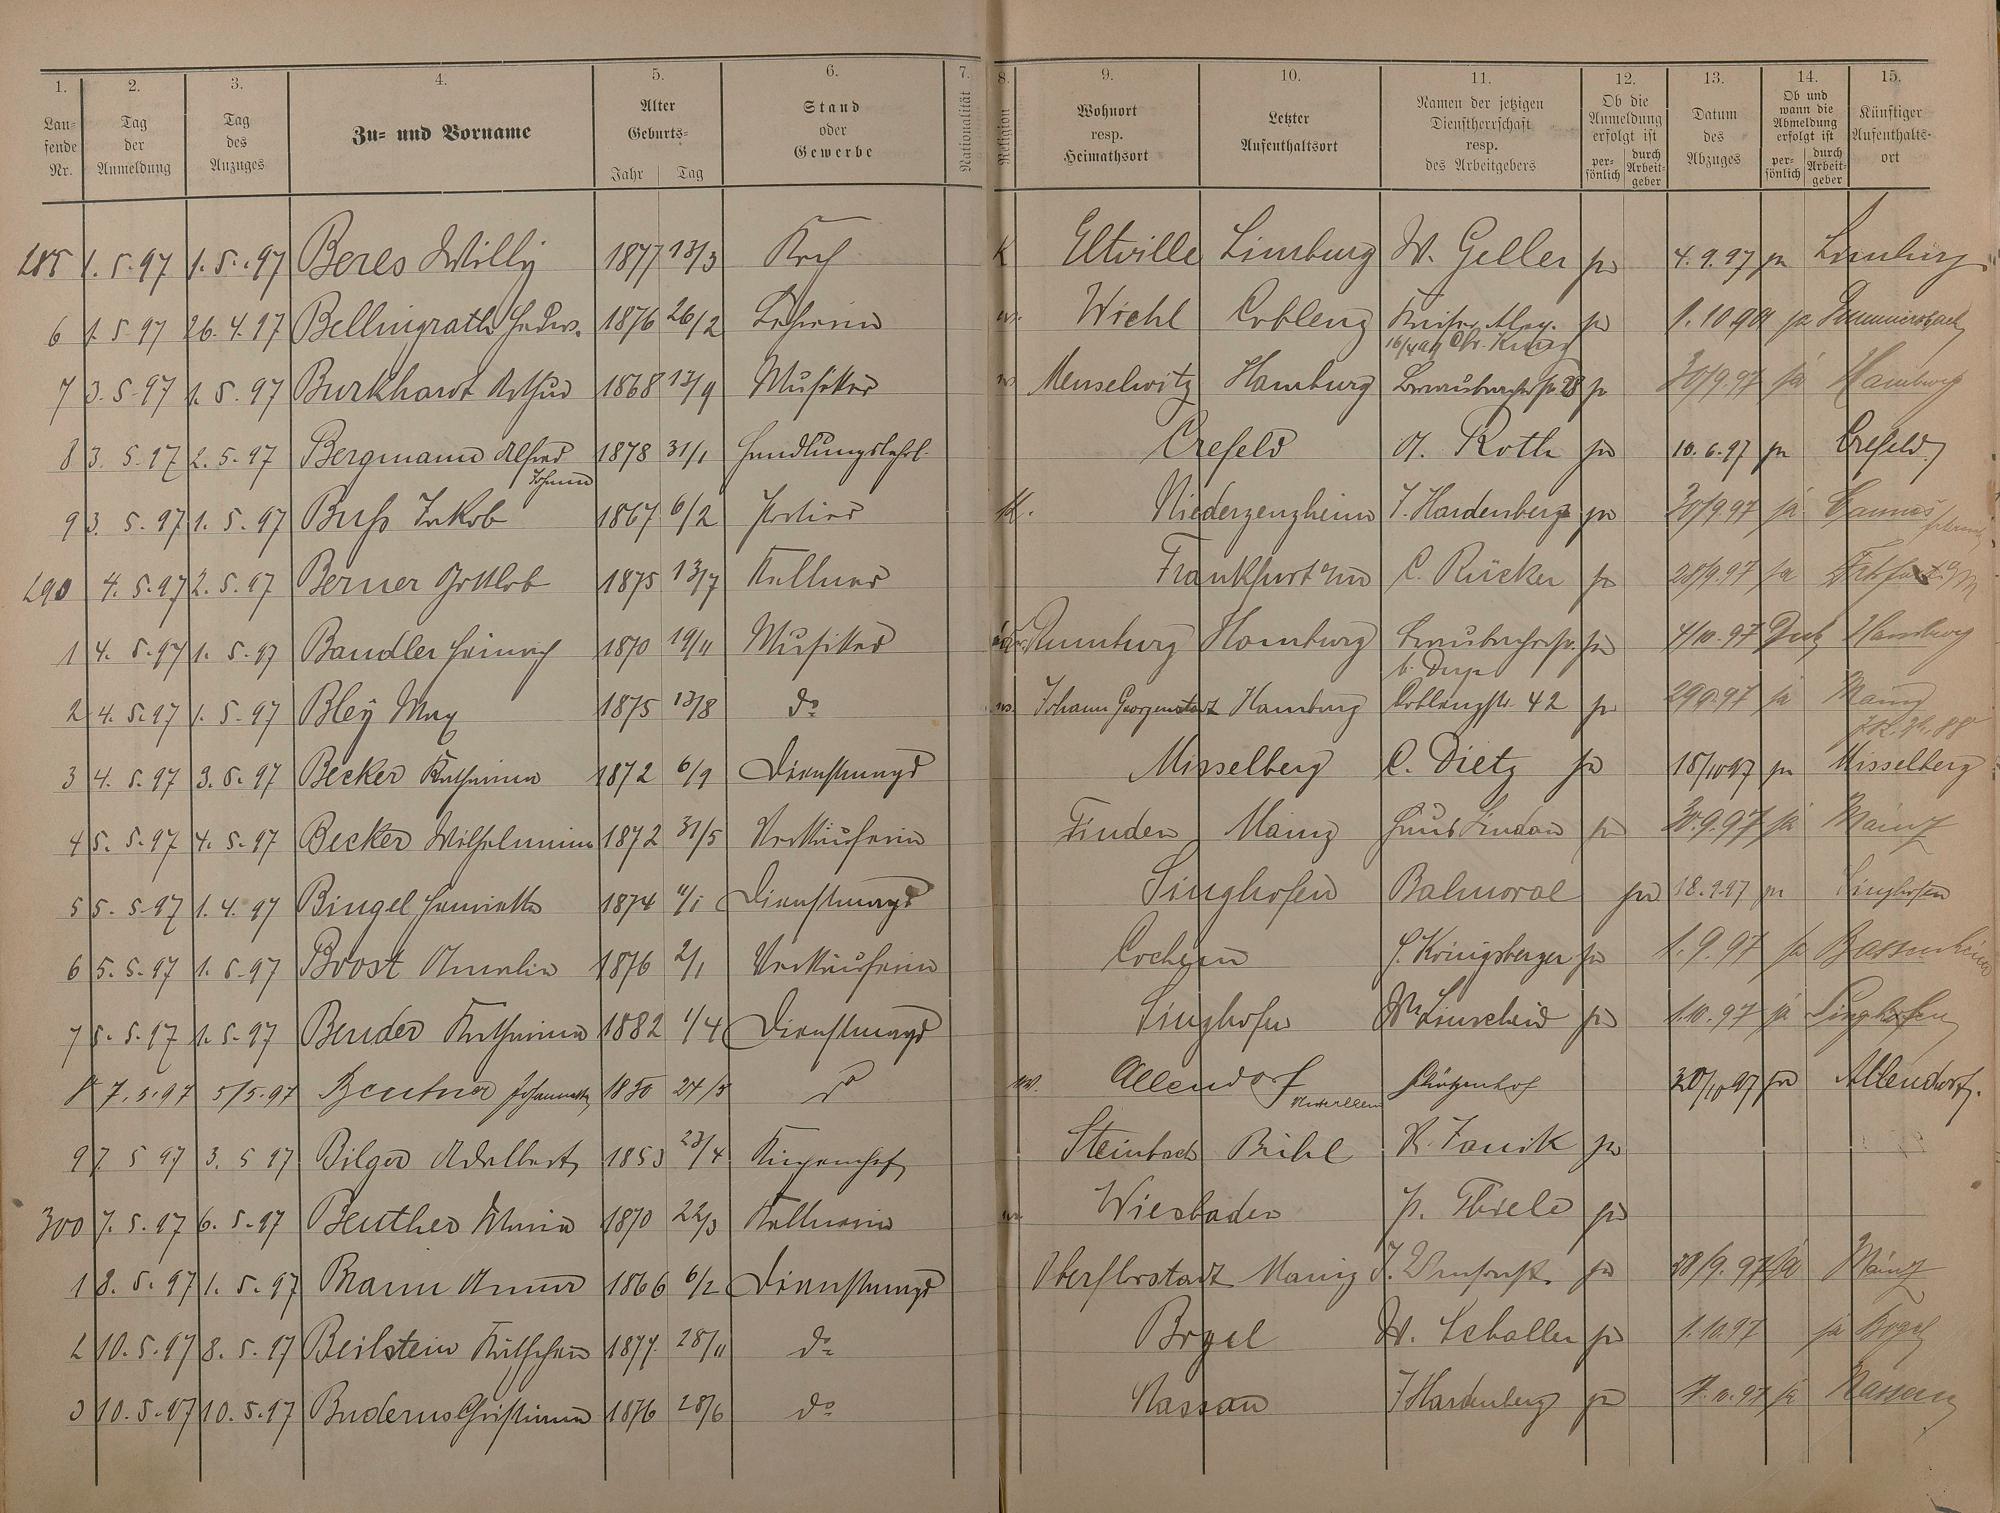 1. 2. 3. 4. 5. 6. 7. 8. 9. 10. 11. 12. 13. 14. 15.
Laufende Nr. Tag der Anmeldung Tag des Anzuges Zu- und Vorname Alter Geburts- Jahr Tag Stand oder Gewerbe Nationalität Religion Wohnort resp. Heimathsort Letzter Aufenthaltsort Namen der jetzigen Dienstherrschaft resp. des Arbeitgebers Ob die Anmeldung erfolgt ist persönlich durch Arbeitgeber Datum des Abzuges Ob und wann die Abmeldung erfolgt ist persönlich durch Arbeitgeber Künftiger Aufenthaltsort
285 1.5.97 1.5.97 Beres Willy 1877 13/3 Koch K Eltville Limburg W. Geller ja 4.9.97 ja Limburg
6 1.5.97 26.4.97 Bellingrath Hedw. 1876 26/2 Lehrerin Wiehl Coblenz ja ja Gummersbach
7 3.5.97 1.5.97 Burkhardt Arthur 1868 13/9 Musiker Meuselwitz Hamburg 28 ja 30/9.97 ja Hamburg
8 3.5.97 2.5.97 Bergmann Alfred Johann 1878 31/1 Handlungslehrl. Crefeld A. Roth ja 10.6.97 ja Crefeld
9 3.5.97 1.5.97 Buss Jakob 1867 6/2 Portier K. Niederzeuzheim J. Hardenberg ja 30/9 97 ja Cannes
290 4.5.97 2.5.97 Berner Gottlob 1875 13/7 Kellner Frankfurt a/M C. Rücker ja 28/9.97 ja Frkfurt a/M
1 4.5.97 1.5.97 Bandler Heinrich 1870 19/11 Musiker Rumburg Homburg ja 4/10.97 Hamburg
2 4.5.97 1.5.97 Bley Max 1875 13/8 do Johann Georgenstadt Hamburg Coblenzstr. 42 ja 29 9.97 ja Mainz
3 4.5.97 3.5.97 Becker Katharina 1872 6/9 Dienstmagd Misselberg C. Dietz ja 15/10 97 ja Misselberg
4 5.5.97 4.5.97 Becker Wilhelmine 1872 31/5 Verkäuferin Finden Mainz Haus Lindau ja 30.9.97 ja Mainz
5 5.5.97 1.4.97 Bingel Henriette 1874 Dienstmagd Singhofen Balmoral ja 18.9.97 ja Singhofen
6 5.5.97 1.5.97 Boost Amalie 1876 2/1 Verkäuferin Cochem S. Königsberger ja 1.9.97 ja Bassenheim
7 5.5.97 1.5.97 Bender Katharina 1882 1/4 Dienstmagd Singhofen Linscheid ja 1.10.97 ja Singhofen
8 7.5.97 5/5.97 Johannette 1850 24/5 do Allendorf Schützenhof 20/10 97 ja Allendorf.
9 7.5 97 3.5 97 Bilger Adalbert 1853 23/4 Küchenchef Steinbach Bühl R. Fanik ja
300 7.5.97 6.5.97 Beuther Maria 1870 22/3 Kellnerin Wiesbaden P. Thiele ja
1 8.5.97 1.5.97 Mann Anna 1866 6/2 Dienstmagd Oberflorstadt Mainz ja 30/9.97 ja Mainz
2 10.5.97 8.5.97 Beilstein Käthchen 1877 28/11 do Bogel W. Schaller ja 1.10.97 ja Bogel
3 10.5.97 10.5.97 Buderus Christiane 1876 28/6 do Nassau J Hardenberg ja 7.10.97 ja Nassau